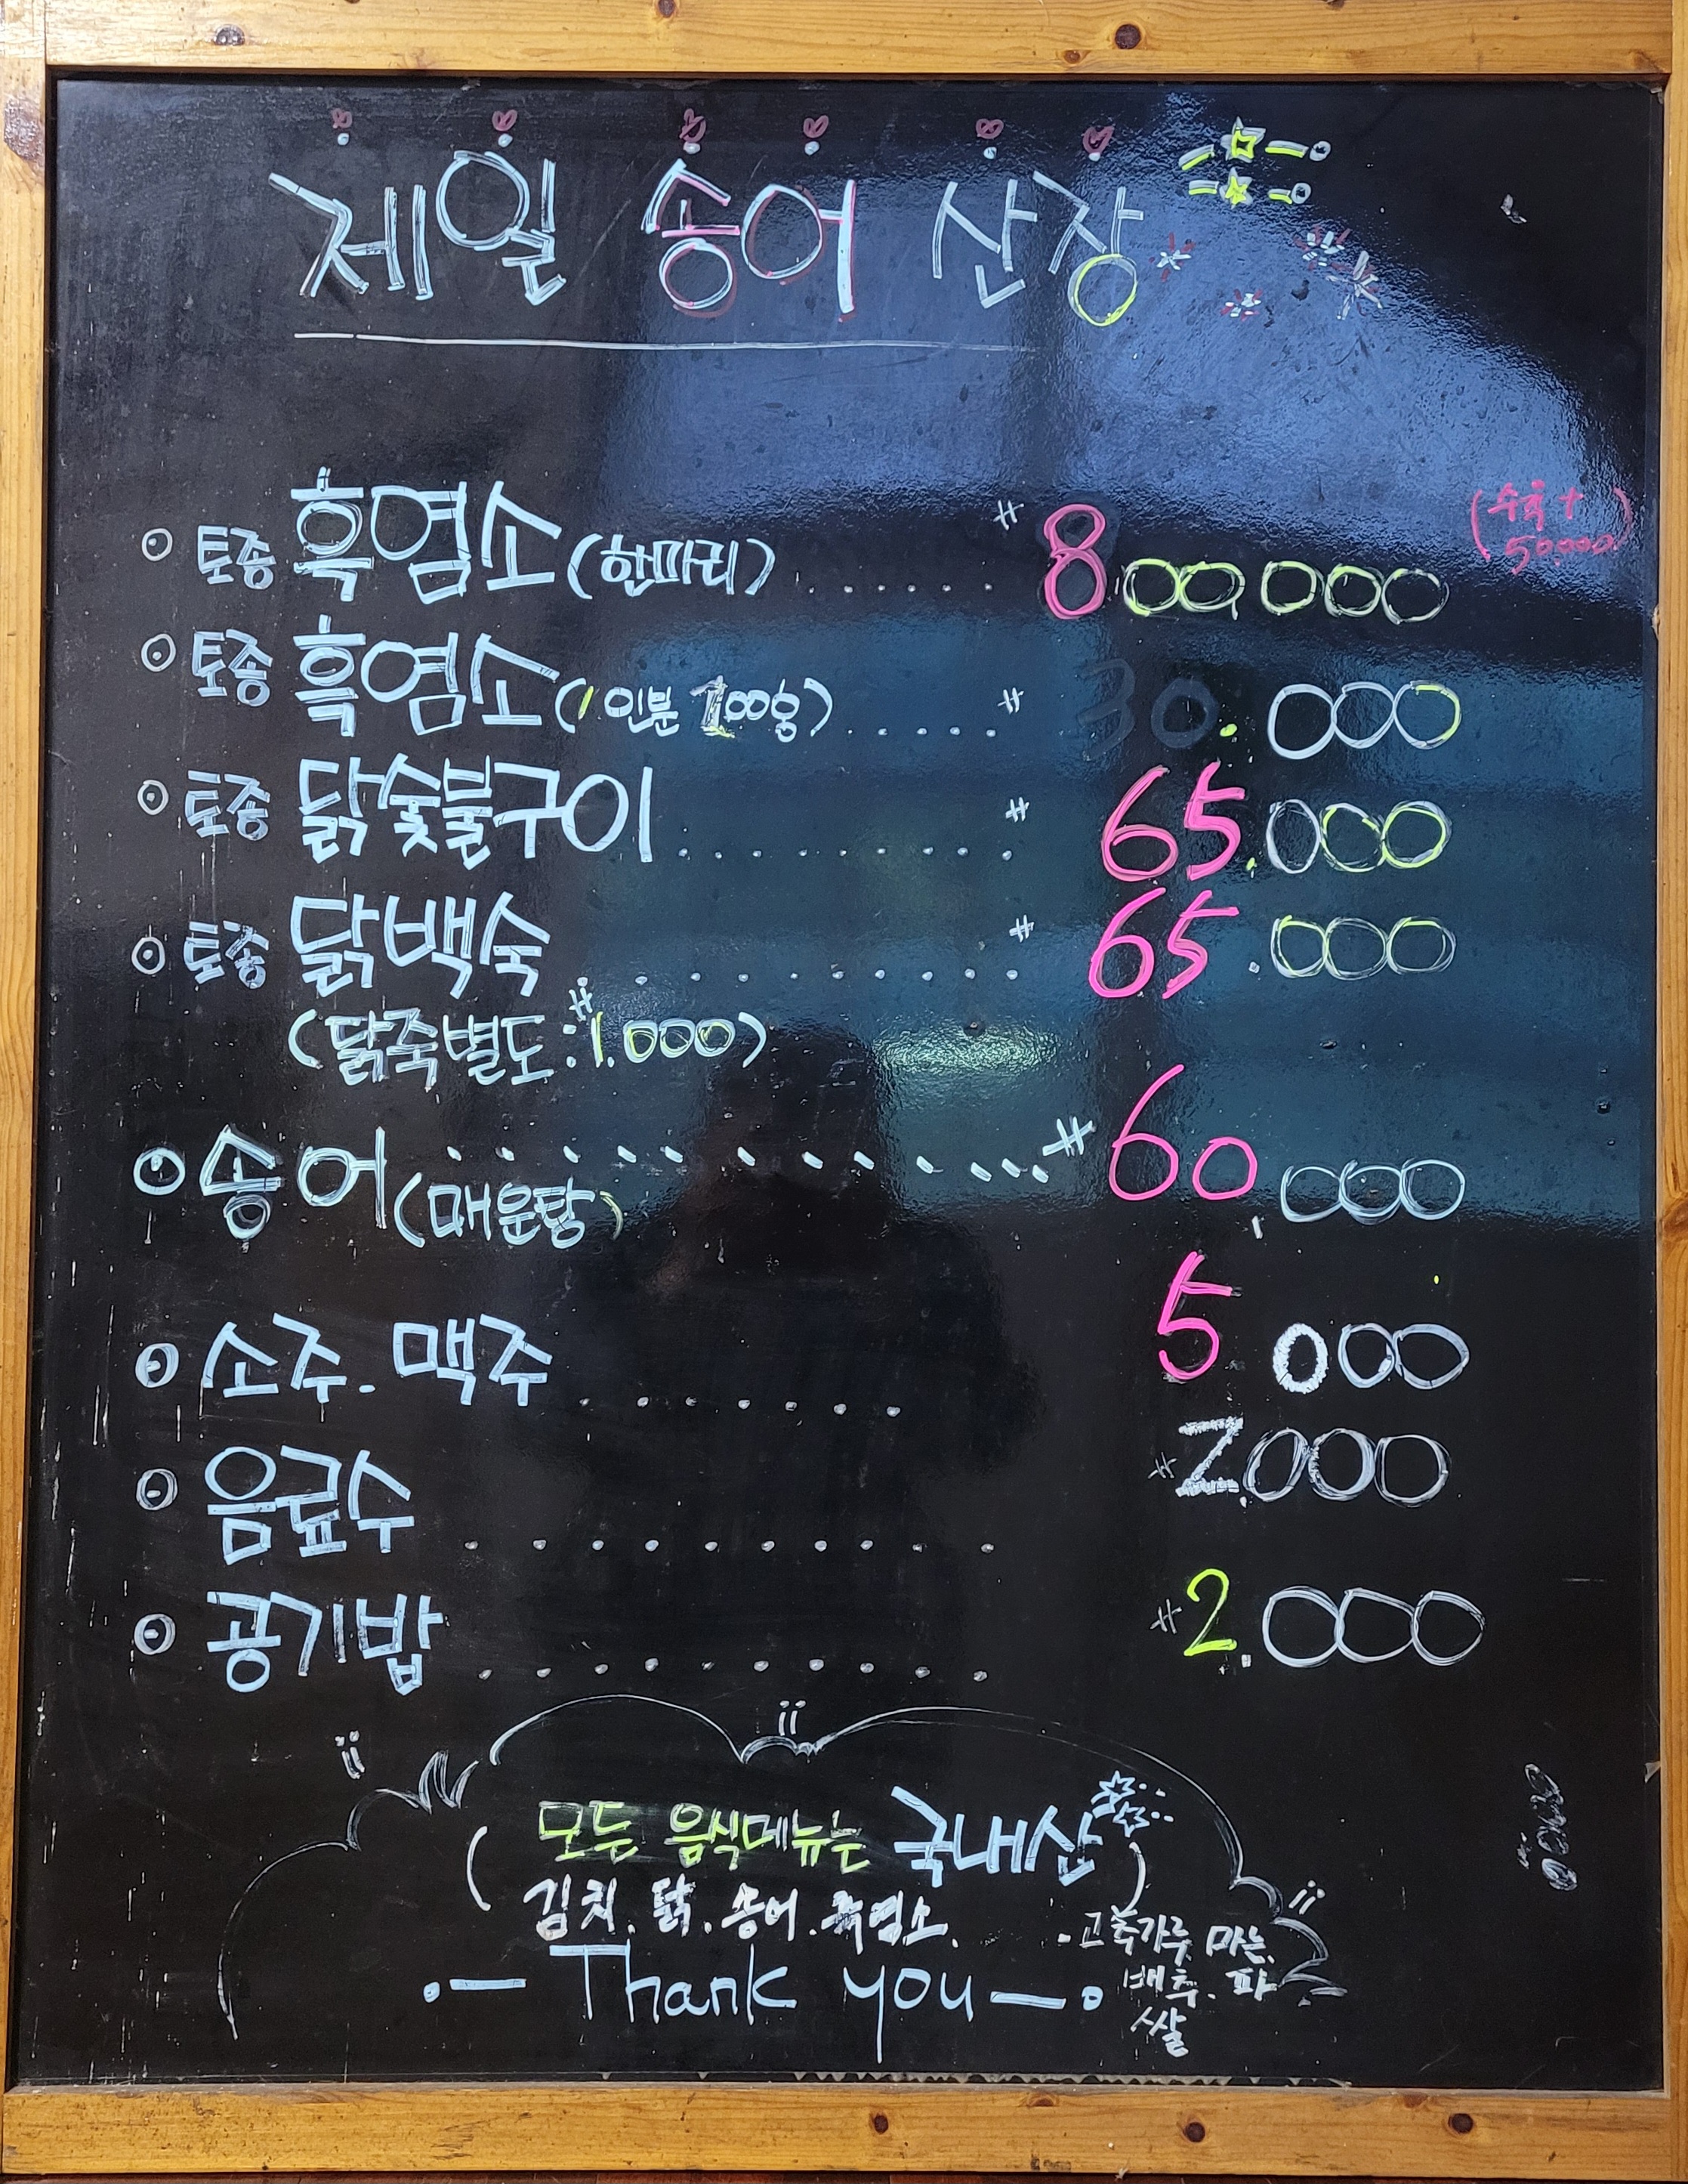 제일 송어 산장
토종 흑염소(한마리)...... # 800000 (수육+
50.000)
토종 흑염소(1인분 200g)..... # 30.000
토종 닭숯불구이......... # 65.000
토종 닭백숙......... # 65.000
(닭죽별도:#1.000)
송어(매운탕)............ # 60,000
소주.맥주...... 5 000
음료수.......... # 2.000
공기밥......... # 2.000
(모든 음식메뉴는 국내산)
김치.닭.송어.흑염소.
·고춧가루 마늘.
배추.파
쌀
Thank you